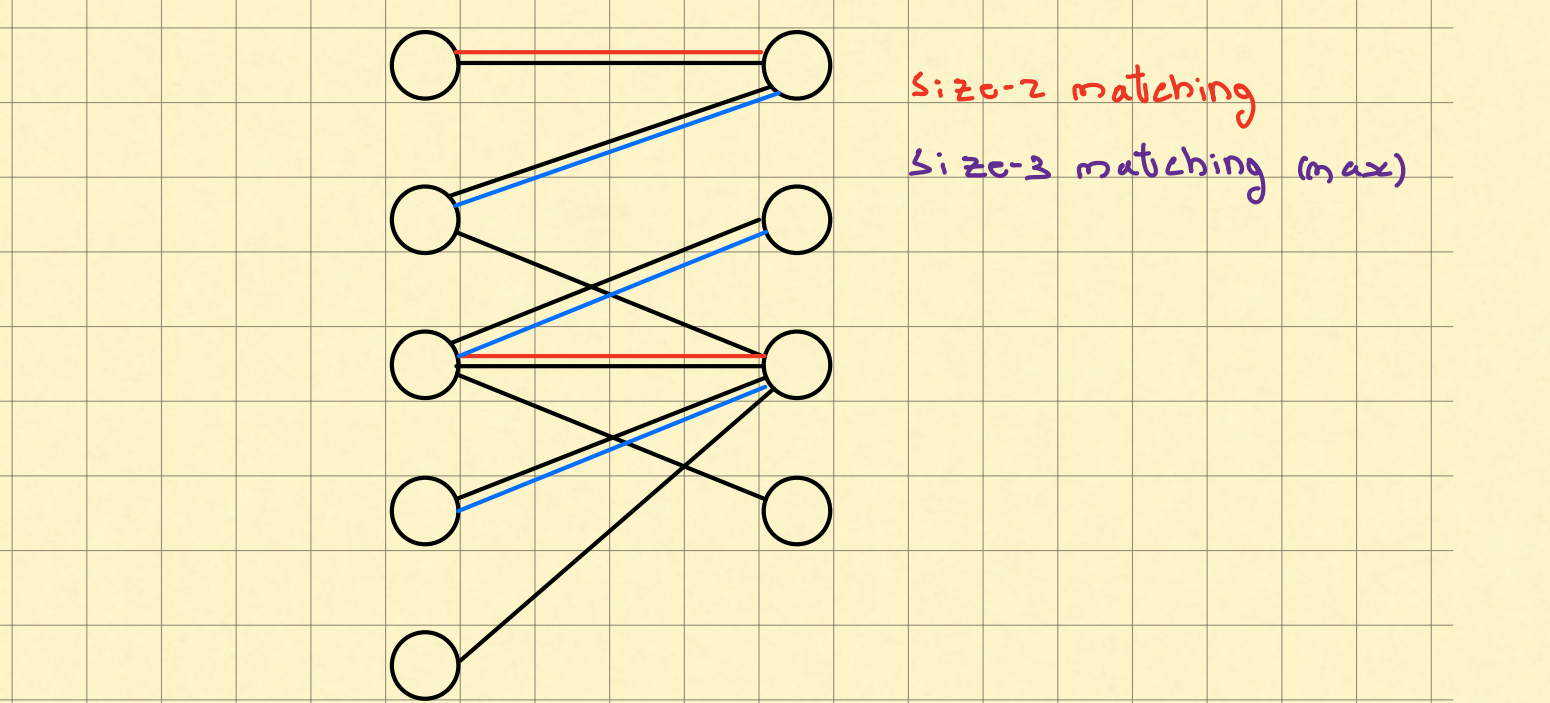 Size-2 matching
Size-3 matching (max)